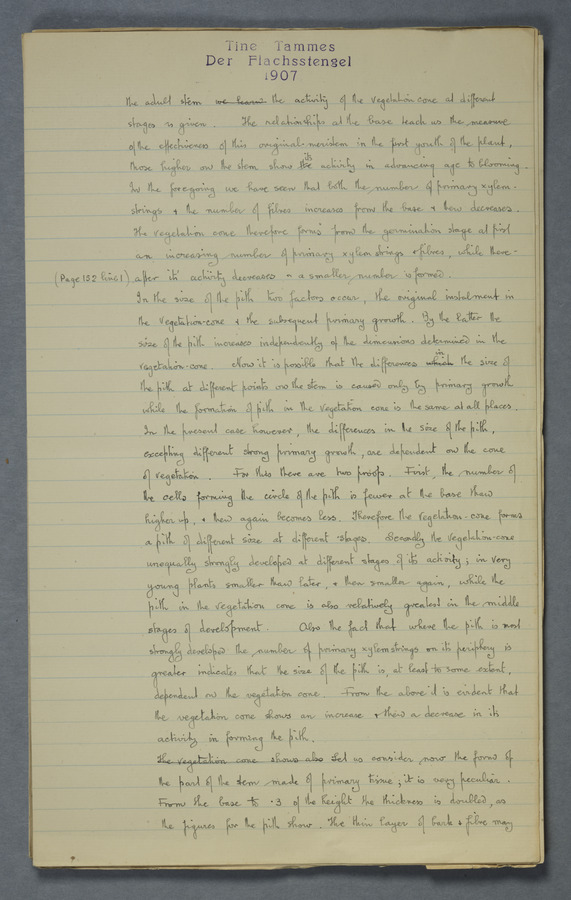 Tine Tammes
Der Flachsstengel
1907
the adult stem we learn the activity of the vegetation cone at different
stages is given. The relationships at the base teach us the measure
of the effectiveness of this original meristem in the first youth of the plant,
those higher on the stem show the its activity in advancing age to blooming.
In the foregoing we have seen that both the number of primary xylem-
strings & the number of fibres increases from the base & then decreases.
The vegetation cone therefore forms from the germination stage at first
an increasing number of primary xylem strings & fibres, while there-
(Page 152 line 1) after its activity decreases & a smaller number is formed.
In the size of the pith two factors occur, the original instalment in
the vegetation-cone & the subsequent primary growth. By the latter the
size of the pith increases independently of the dimensions determined in the
vegetation-cone. Now it is possible that the differences which in the size of
the pith at different points on the stem is caused only by primary growth
while the formation of pith in the vegetation cone is the same at all places.
In the present case however, the differences in the size of the pith,
excepting different strong primary growth, are dependent on the cone
of vegetation. For this there are two proofs. First, the number of
the cells forming the circle of the pith is fewer at the base than
higher up, & then again becomes less. Therefore the vegetation-cone forms
a pith of different size at different stages. Secondly the vegetation-cone
unequally strongly developed at different stages of its activity; in very
young plants smaller than later, & then smaller again, while the
pith in the vegetation cone is also relatively greatest in the middle
stages of development. Also the fact that where the pith is most
strongly developed the number of primary xylem strings on its periphery is
greater indicates that the size of the pith is, at least to some extent,
dependent on the vegetation cone. From the above it is evident that
the vegetation cone shows an increase & then a decrease in its
activity in forming the pith.
The vegetation cone shows also Let us consider now the form of
the part of the stem made of primary tissue; it is very peculiar.
From the base to .3 of the height the thickness is doubled, as
the figures for the pith show. The thin layer of bark & fibre may